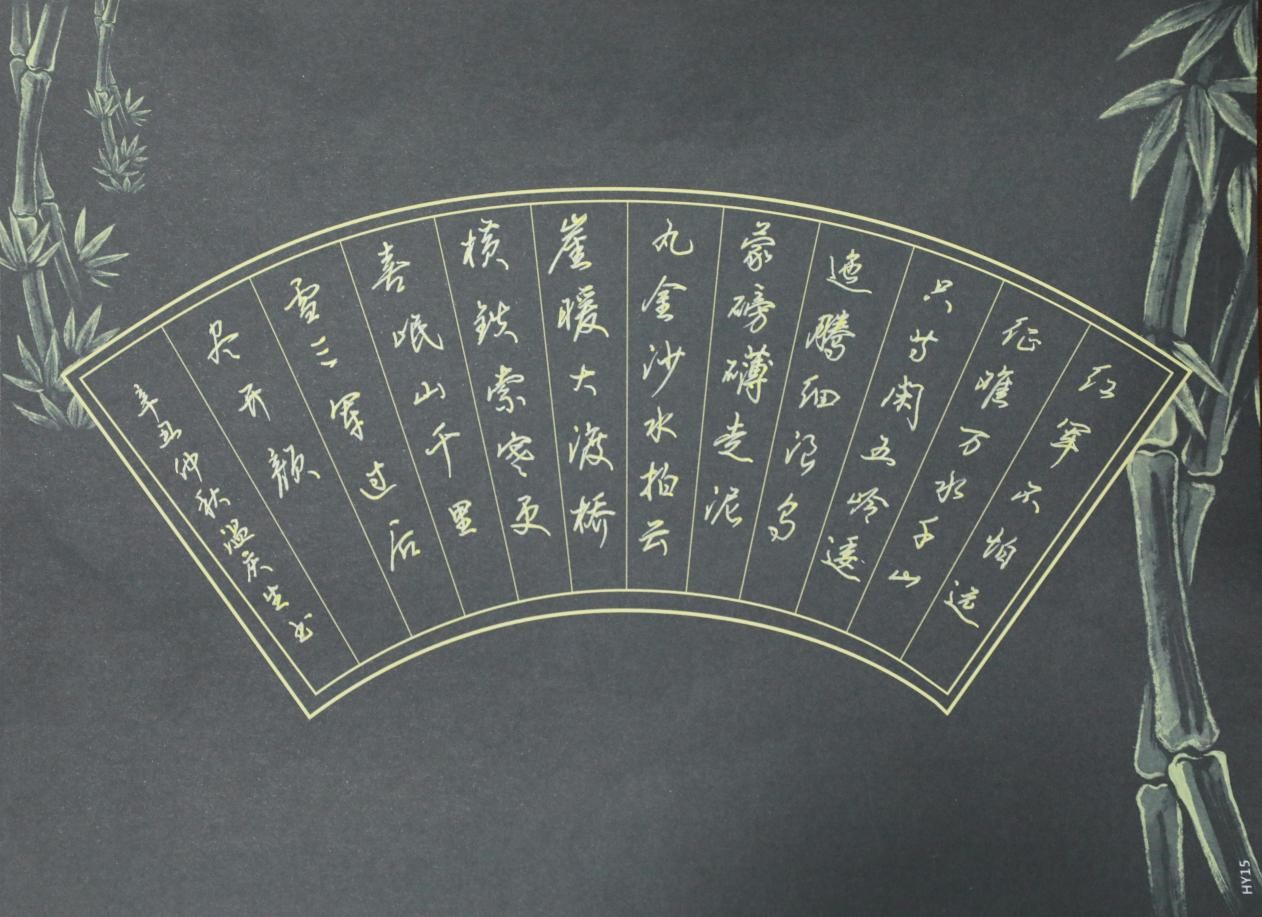 红军不怕远
征难万水千山
只等闲五岭逶
迤腾细浪乌
蒙磅礴走泥
丸金沙水拍云
崖暖大渡桥
横铁索寒更
喜岷山千里
雪三军过后
尽开颜
辛丑仲秋温庆生书
HY15